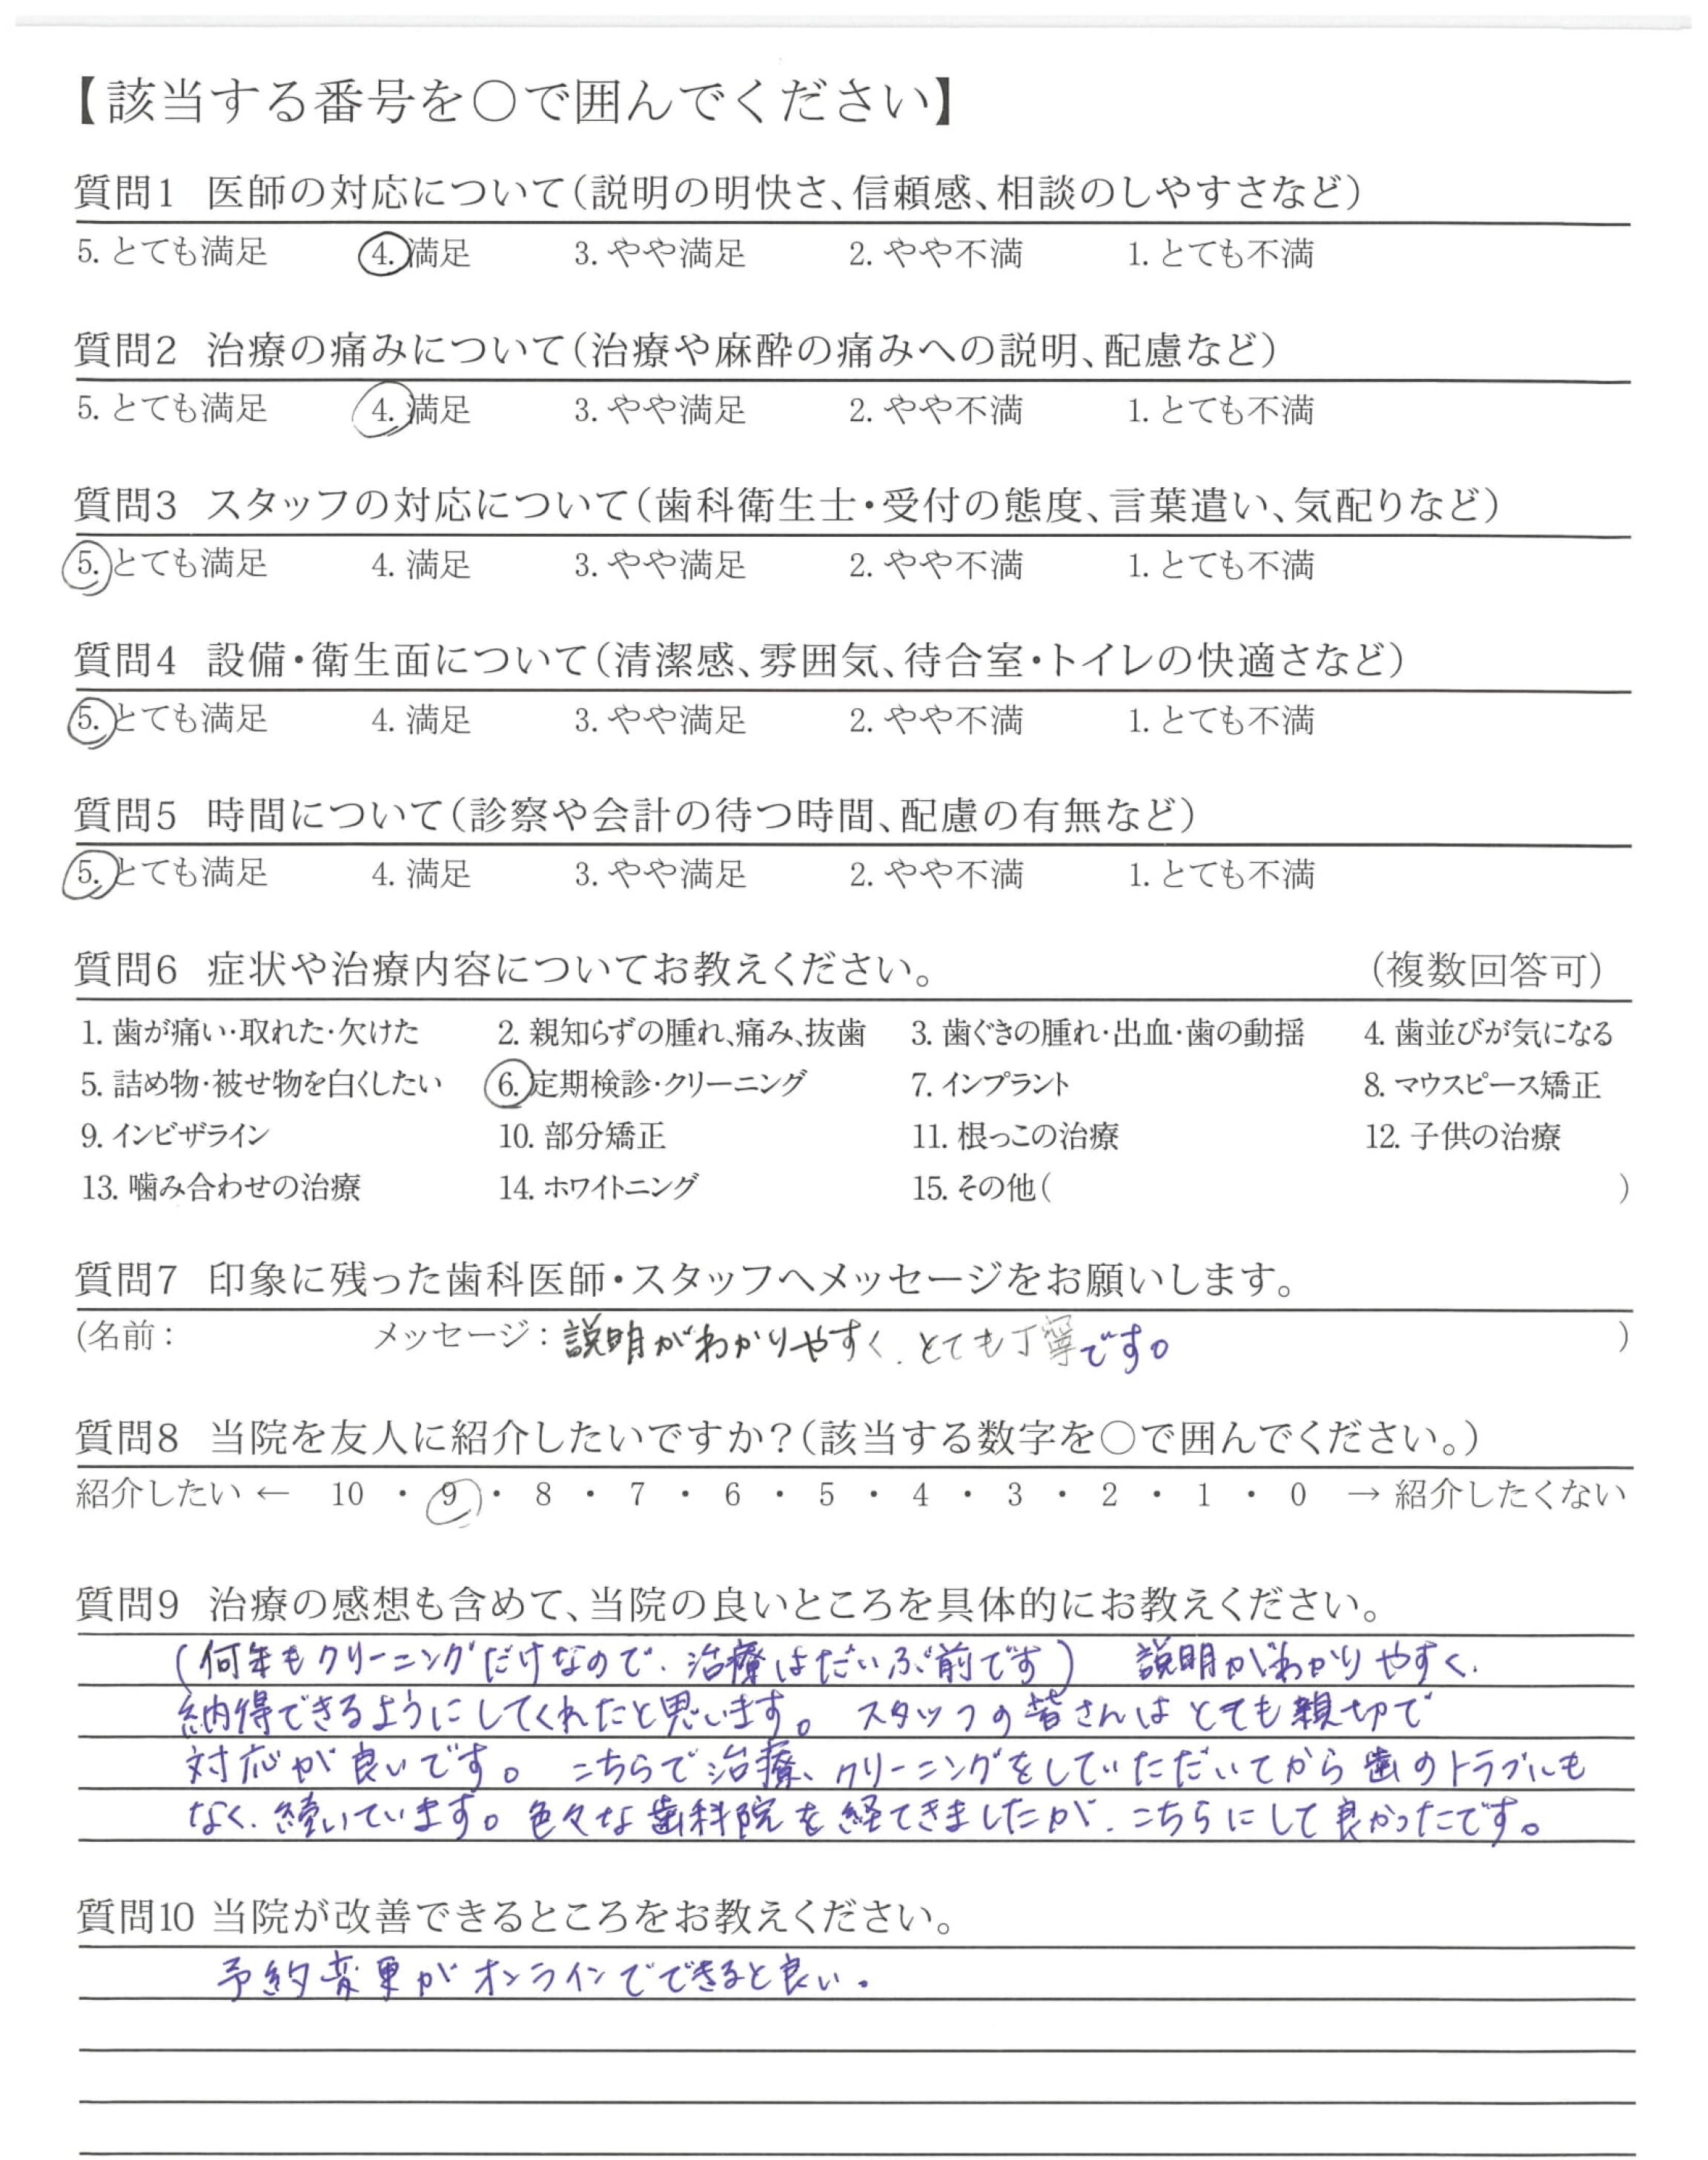 【該当する番号を○で囲んでください】
質問1 医師の対応について(説明の明快さ、信頼感、相談のしやすさなど)
5. とても満足 4. 満足 3. やや満足 2. やや不満 1. とても不満
質問2 治療の痛みについて(治療や麻酔の痛みへの説明、配慮など)
5. とても満足 4. 満足 3. やや満足 2. やや不満 1. とても不満
質問3 スタッフの対応について(歯科衛生士・受付の態度、言葉遣い、気配りなど)
5. とても満足 4. 満足 3. やや満足 2. やや不満 1. とても不満
質問4 設備・衛生面について(清潔感、雰囲気、待合室・トイレの快適さなど)
5. とても満足 4. 満足 3. やや満足 2. やや不満 1. とても不満
質問5 時間について(診察や会計の待つ時間、配慮の有無など)
5. とても満足 4. 満足 3. やや満足 2. やや不満 1. とても不満
質問6 症状や治療内容についてお教えください。 (複数回答可)
1. 歯が痛い・取れた・欠けた 2. 親知らずの腫れ、痛み、抜歯 3. 歯ぐきの腫れ・出血・歯の動揺 4. 歯並びが気になる
5. 詰め物・被せ物を白くしたい 6. 定期検診・クリーニング 7. インプラント 8. マウスピース矯正
9. インビザライン 10. 部分矯正 11. 根っこの治療 12. 子供の治療
13. 噛み合わせの治療 14. ホワイトニング 15. その他( )
質問7 印象に残った歯科医師・スタッフへメッセージをお願いします。
(名前: メッセージ: 説明がわかりやすく、とても丁寧です。 )
質問8 当院を友人に紹介したいですか?(該当する数字を○で囲んでください。)
紹介したい ← 10 ・ 9 ・ 8 ・ 7 ・ 6 ・ 5 ・ 4 ・ 3 ・ 2 ・ 1 ・ 0 → 紹介したくない
質問9 治療の感想も含めて、当院の良いところを具体的にお教えください。
(何年もクリーニングだけなので、治療はだいぶ前です) 説明がわかりやすく、
納得できるようにしてくれたと思います。 スタッフの皆さんはとても親切で
対応が良いです。 こちらで治療、クリーニングをしていただいてから歯のトラブルも
なく、続いています。色々な歯科院を経てきましたが、こちらにして良かったです。
質問10 当院が改善できるところをお教えください。
予約変更がオンラインでできると良い。